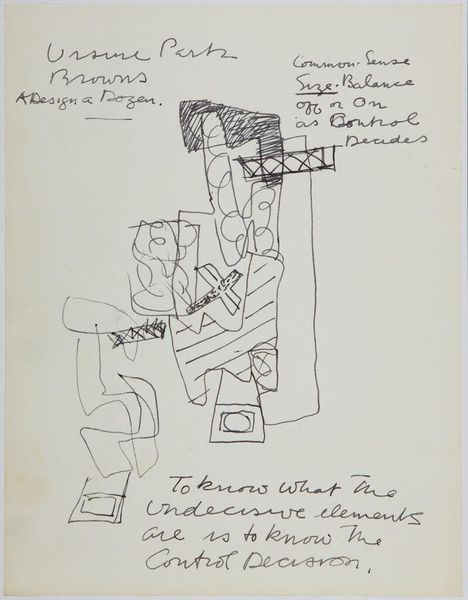 Ursine Park
Browns
A Design a Dozen.
Common-Sense
Size-Balance
off or On
as Control
Decides
To know what The
undecisive elements
are is to know The
Control Decision.